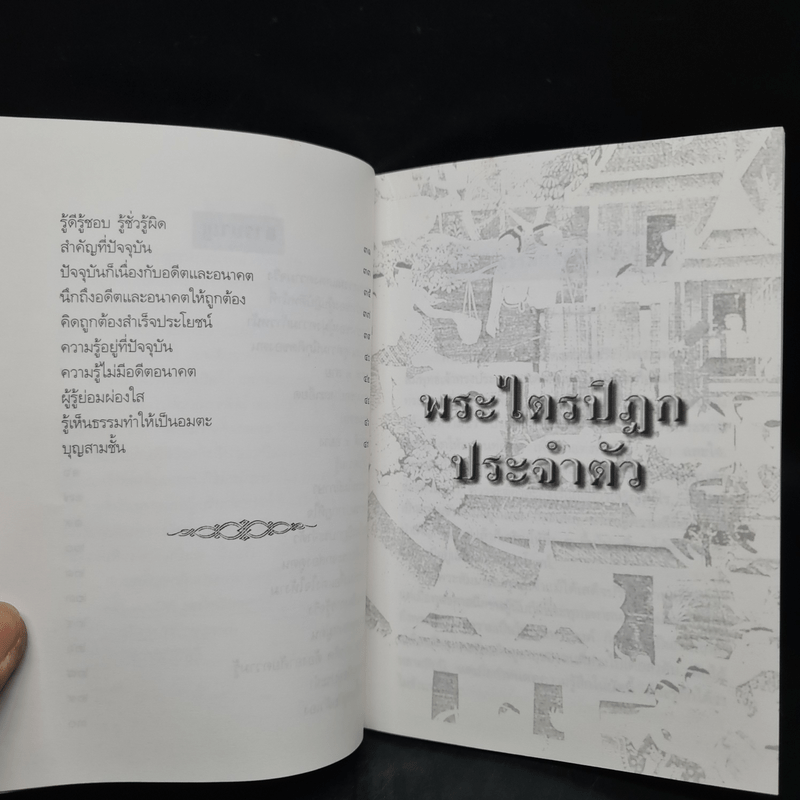 รู้ดีรู้ชอบ รู้ชั่วรู้ผิด
สำคัญที่ปัจจุบัน
ปัจจุบันก็เนื่องกับอดีตและอนาคต
นึกถึงอดีตและอนาคตให้ถูกต้อง
คิดถูกต้องสำเร็จประโยชน์
ความรู้อยู่ที่ปัจจุบัน
ความรู้ไม่มีอดีตอนาคต
ผู้รู้ย่อมผ่องใส
รู้เห็นธรรมทำให้เป็นอมตะ
บุญสามชั้น
พระไตรปิฎก
ประจำตัว